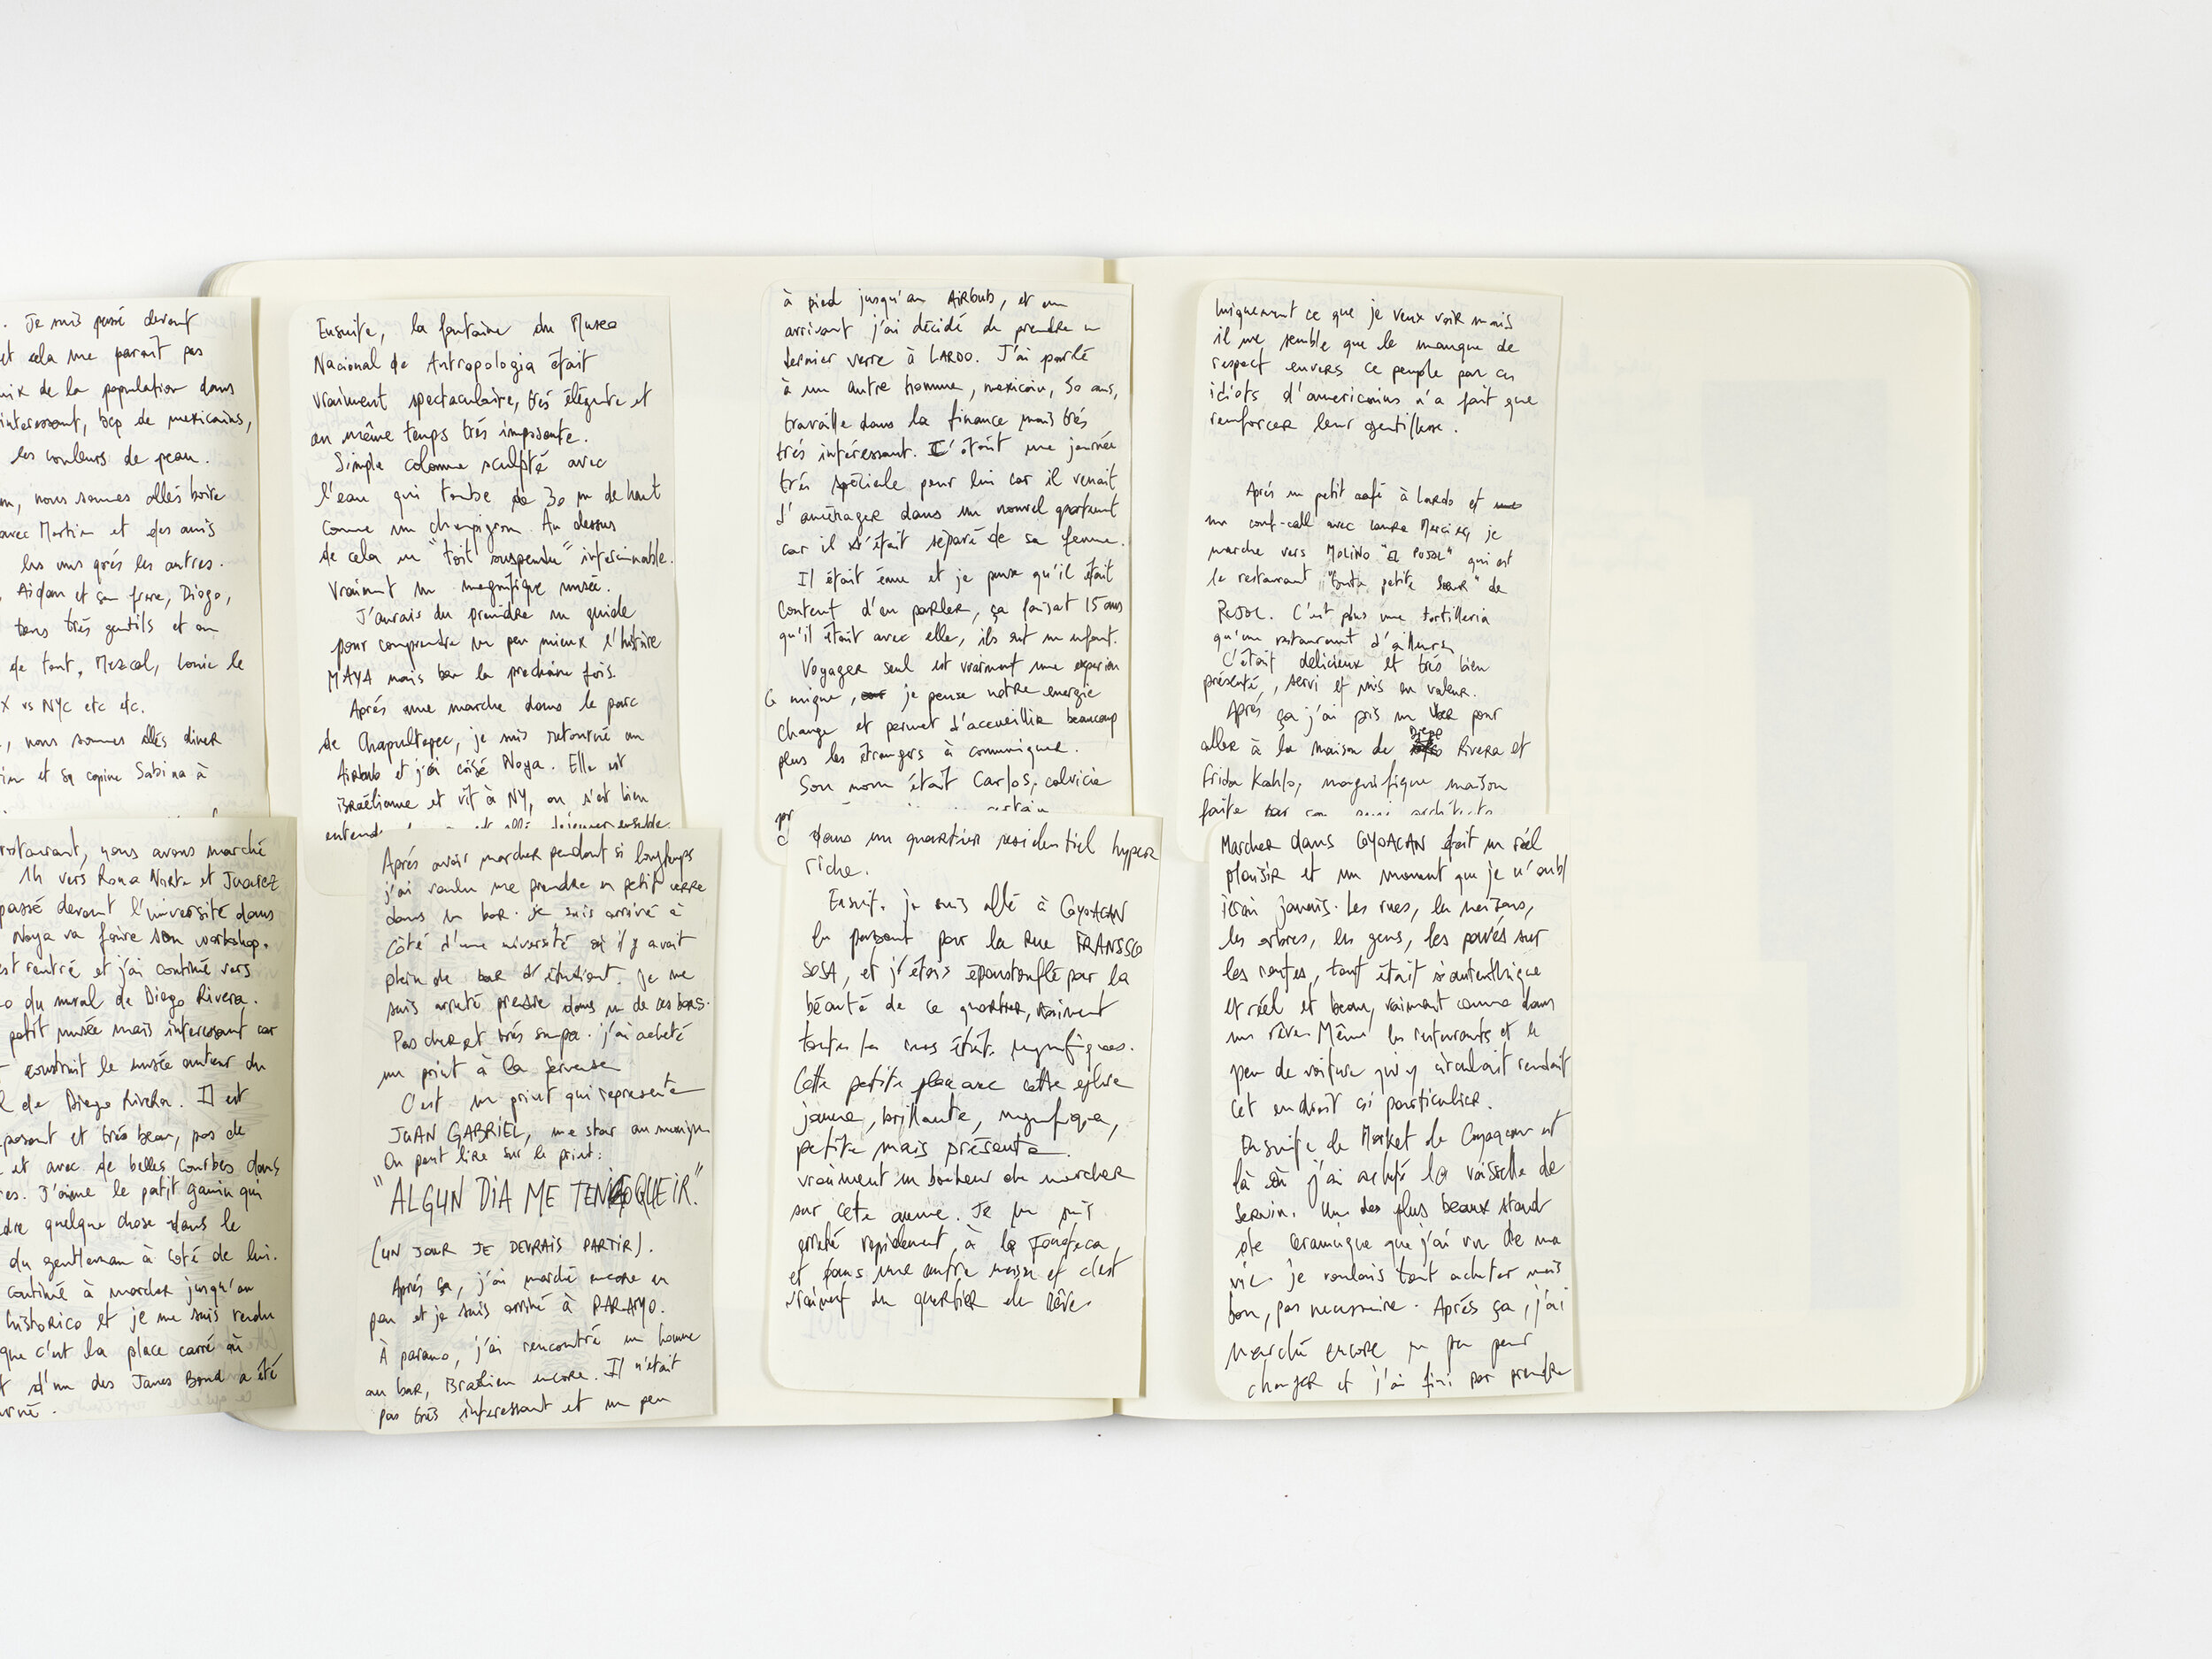 . Je suis passé devant
et cela me parait pas
mix de la population dans
interessant, bcp de mexicains,
les couleurs de peau.
nous sommes allés boire
avec Martin et des amis
les uns après les autres.
Aidan et son frere, Diego,
tous très gentils et on
de tout, Mezcal, Louie le
X vs NYC etc etc.
, nous sommes allés diner
et sa copine Sabina à
restaurant, nous avons marché
1h vers Roma Norte et Juarez
passé devant l'université dans
Noya va faire son workshop.
est rentré et j'ai continué vers
du mural de Diego Rivera.
petit musée mais interessant car
construit le musée autour du
de Diego Rivera. Il est
posant et très beau, pas de
et avec de belles courbes dans
res. J'aime le petit gamin qui
dre quelque chose dans le
du gentleman à coté de lui.
continué à marcher jusqu'au
historico et je me suis rendu
que c'est la place carré où
d'un des James Bond a été
urné.
Ensuite, la fontaine du Museo
Nacional de Antropologia était
vraiment spectaculaire, très élégante et
en même temps très imposante.
Simple colonne sculpté avec
l'eau qui tombe de 30 m de haut
comme un champignon. Au dessus
de cela un "toit suspendu" interminable.
Vraiment un magnifique musée.
J'aurais du prendre un guide
pour comprendre un peu mieux l'histoire
MAYA mais bon la prochaine fois.
Après une marche dans le parc
de Chapultepec, je suis retourné au
Airbnb et j'ai croisé Noya. Elle est
israélienne et vit à NY, on s'est bien
entend et allé dejeuner ensemble
Après avoir marcher pendant si longtemps
j'ai voulu me prendre un petit verre
dans un bar. Je suis arrivé à
côté d'une université où il y avait
plein de bar d'étudiant. Je me
suis arreté prendre dans un de ces bars.
Pas cher et très sympa. j'ai acheté
un print à la serveuse
C'est un print qui represente
JUAN GABRIEL, une star au mexique
On peut lire sur le print:
"ALGUN DIA ME TENGO QUE IR."
(UN JOUR JE DEVRAIS PARTIR).
Après ça, j'ai marché encore un
peu et je suis arrivé à PARAMO.
À paramo, j'ai rencontré un homme
au bar, Bresilien encore. Il n'était
pas très interessant et un peu
à pied jusqu'au AiRbnb, et en
arrivant j'ai décidé de prendre un
dernier verre à LARDO. J'ai parlé
à un autre homme, mexicain, 50 ans,
travaille dans la finance mais très
très intéressant. C'était une journée
très spéciale pour lui car il venait
d'aménager dans un nouvel apartement
car il s'était séparé de sa femme.
Il était ému et je pense qu'il était
content d'en parler, ça faisait 15 ans
qu'il était avec elle, ils ont un enfant.
Voyager seul est vraiment une experien
ce unique, je pense notre energie
change et permet d'accueillir beaucoup
plus les étrangers à communiquer.
Son nom était Carlos, calvicie
certain
dans un quartier residentiel hyper
riche.
Ensuit, je suis allé à COYOACAN
en passant par la Rue FRANSSCO
SOSA, et j'étais époustouflé par la
béauté de ce quartier, vraiment
toutes les rues était magnifiques.
Cette petite place avec cette eglise
jaune, brillante, magnifique,
petite mais présente.
vraiment un bonheur de marcher
sur cete avenue. Je me suis
arreté rapidement à la Fonoteca
et dans une autre maison et c'est
vraiment un quartier de Rêve.
luiquement ce que je veux voir mais
il me semble que le manque de
respect envers ce peuple par ces
idiots d'americains n'a fait que
renforcer leur gentillesse.
Après un petit café à Lardo et
un conf-call avec Laura Mercier, je
marche vers MOLINO "EL PUJOL" qui est
le restaurant "toute petite soeur" de
PUJOL. C'est plus une tortilleria
qu'un restaurant d'ailleurs
C'était delicieux et très bien
présenté, servi et mis en valeur.
Après ça j'ai pris un Uber pour
aller à la maison de Diego Rivera et
Frida Kahlo, magnifique maison
faite par son ami architecte
Marcher dans COYOACAN était un réel
plaisir et un moment que je n'oubl
ierai jamais. Les rues, les maisons,
les arbres, les gens, les pavés sur
les routes, tout était si autenthique
et réel et beau, vraiment comme dans
un rêve. Même les restaurants et le
peu de voiture qui y circulait rendait
cet endroit si particulier.
Ensuite de Market de Coyoacan et
là où j'ai acheté la vaisselle de
Servin. Un des plus beaux stand
de ceramique que j'ai vu de ma
vie. je voulais tout acheter mais
bon, pas necessaire. Après ça, j'ai
marché encore un peu pour
changer et j'ai fini par prendre